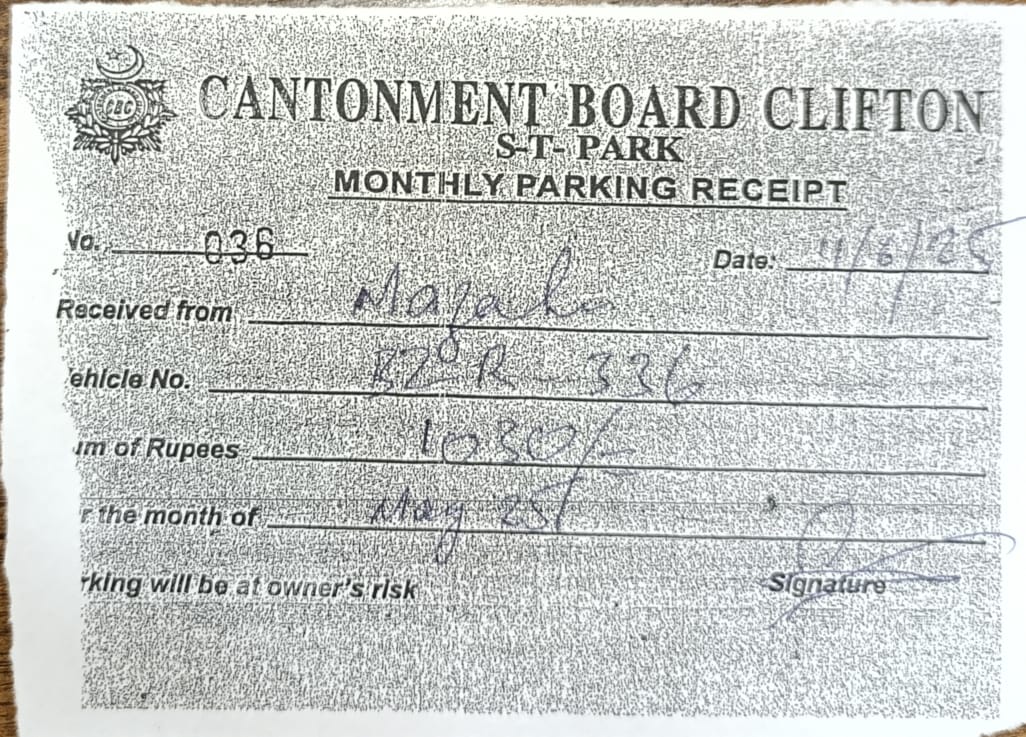 CBC
CANTONMENT BOARD CLIFTON
S-T- PARK
MONTHLY PARKING RECEIPT
No. 036 Date: 11/6/25
Received from
ehicle No. R - 336
um of Rupees 1030/-
r the month of May 25
rking will be at owner's risk Signature